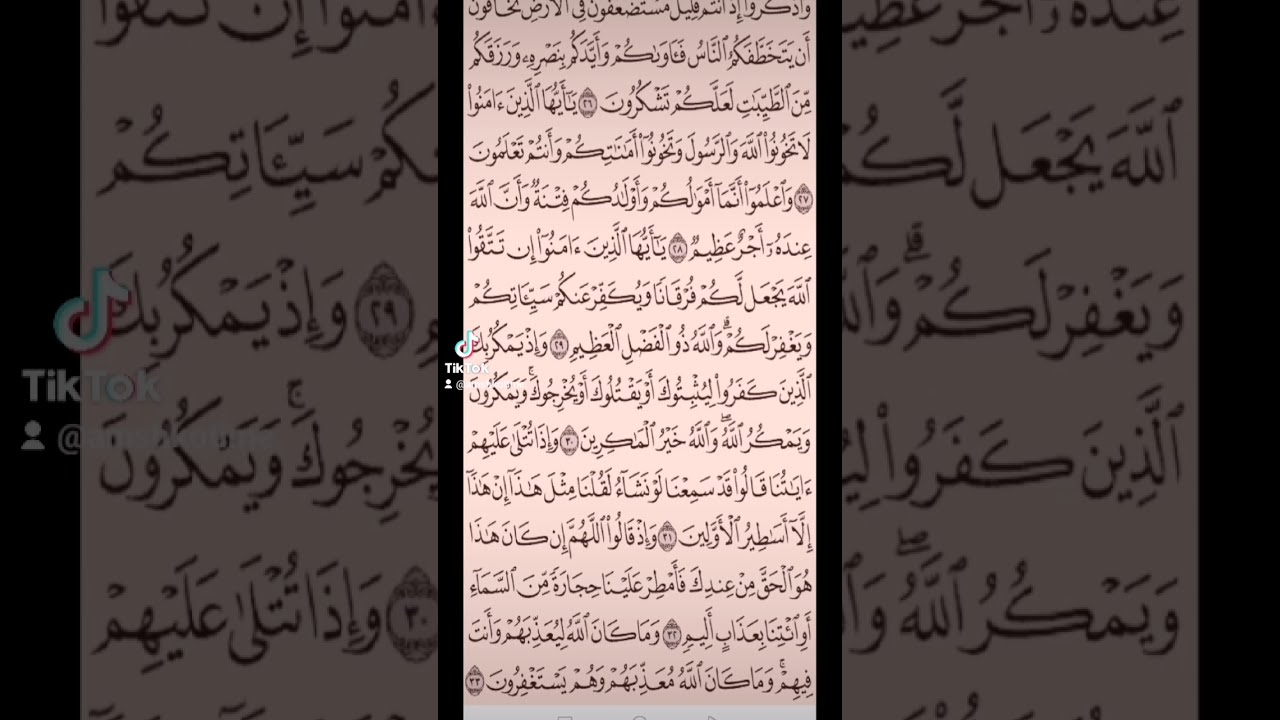 وَاذْكُرُوا إِذْ أَنتُمْ قَلِيلٌ مُّسْتَضْعَفُونَ فِي الْأَرْضِ تَخَافُونَ
أَن يَتَخَطَّفَكُمُ ٱلنَّاسُ فَـَٔاوَىٰكُمْ وَأَيَّدَكُم بِنَصْرِهِۦ وَرَزَقَكُم
مِّنَ ٱلطَّيِّبَٰتِ لَعَلَّكُمْ تَشْكُرُونَ ٢٦ يَٰٓأَيُّهَا ٱلَّذِينَ ءَامَنُوا۟
لَا تَخُونُوا۟ ٱللَّهَ وَٱلرَّسُولَ وَتَخُونُوٓا۟ أَمَٰنَٰتِكُمْ وَأَنتُمْ تَعْلَمُونَ
٢٧ وَٱعْلَمُوٓا۟ أَنَّمَآ أَمْوَٰلُكُمْ وَأَوْلَٰدُكُمْ فِتْنَةٌ وَأَنَّ ٱللَّهَ
عِندَهُۥٓ أَجْرٌ عَظِيمٌ ٢٨ يَٰٓأَيُّهَا ٱلَّذِينَ ءَامَنُوٓا۟ إِن تَتَّقُوا۟
ٱللَّهَ يَجْعَل لَّكُمْ فُرْقَانًا وَيُكَفِّرْ عَنكُمْ سَيِّـَٔاتِكُمْ
وَيَغْفِرْ لَكُمْ ۗ وَٱللَّهُ ذُو ٱلْفَضْلِ ٱلْعَظِيمِ ٢٩ وَإِذْ يَمْكُرُ بِكَ
ٱلَّذِينَ كَفَرُوا۟ لِيُثْبِتُوكَ أَوْ يَقْتُلُوكَ أَوْ يُخْرِجُوكَ ۚ وَيَمْكُرُونَ
وَيَمْكُرُ ٱللَّهُ ۖ وَٱللَّهُ خَيْرُ ٱلْمَٰكِرِينَ ٣٠ وَإِذَا تُتْلَىٰ عَلَيْهِمْ
ءَايَٰتُنَا قَالُوا۟ قَدْ سَمِعْنَا لَوْ نَشَآءُ لَقُلْنَا مِثْلَ هَٰذَآ ۙ إِنْ هَٰذَآ
إِلَّآ أَسَٰطِيرُ ٱلْأَوَّلِينَ ٣١ وَإِذْ قَالُوا۟ ٱللَّهُمَّ إِن كَانَ هَٰذَا
هُوَ ٱلْحَقَّ مِنْ عِندِكَ فَأَمْطِرْ عَلَيْنَا حِجَارَةً مِّنَ ٱلسَّمَآءِ
أَوِ ٱئْتِنَا بِعَذَابٍ أَلِيمٍ ٣٢ وَمَا كَانَ ٱللَّهُ لِيُعَذِّبَهُمْ وَأَنتَ
فِيهِمْ ۚ وَمَا كَانَ ٱللَّهُ مُعَذِّبَهُمْ وَهُمْ يَسْتَغْفِرُونَ ٣٣
TikTok